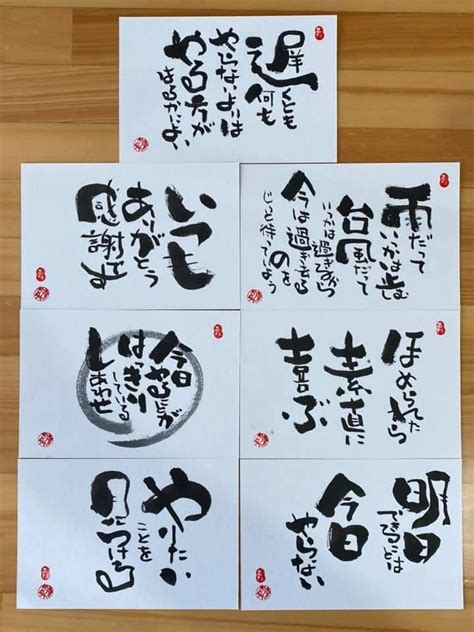 遅くとも
何も
やらないよりは
やる方が
はるかによい
いつも
ありがとう
感謝です
雨だって
いつかは止む
台風だって
いつかは過ぎ
今は過ぎ去る
のを
じっと待ってみよう
今日
やることが
はっきり
している
しあわせ
ほめられたら
素直に
喜ぶ
やりたい
ことを
見つける
明日
できることは
今日
やらない